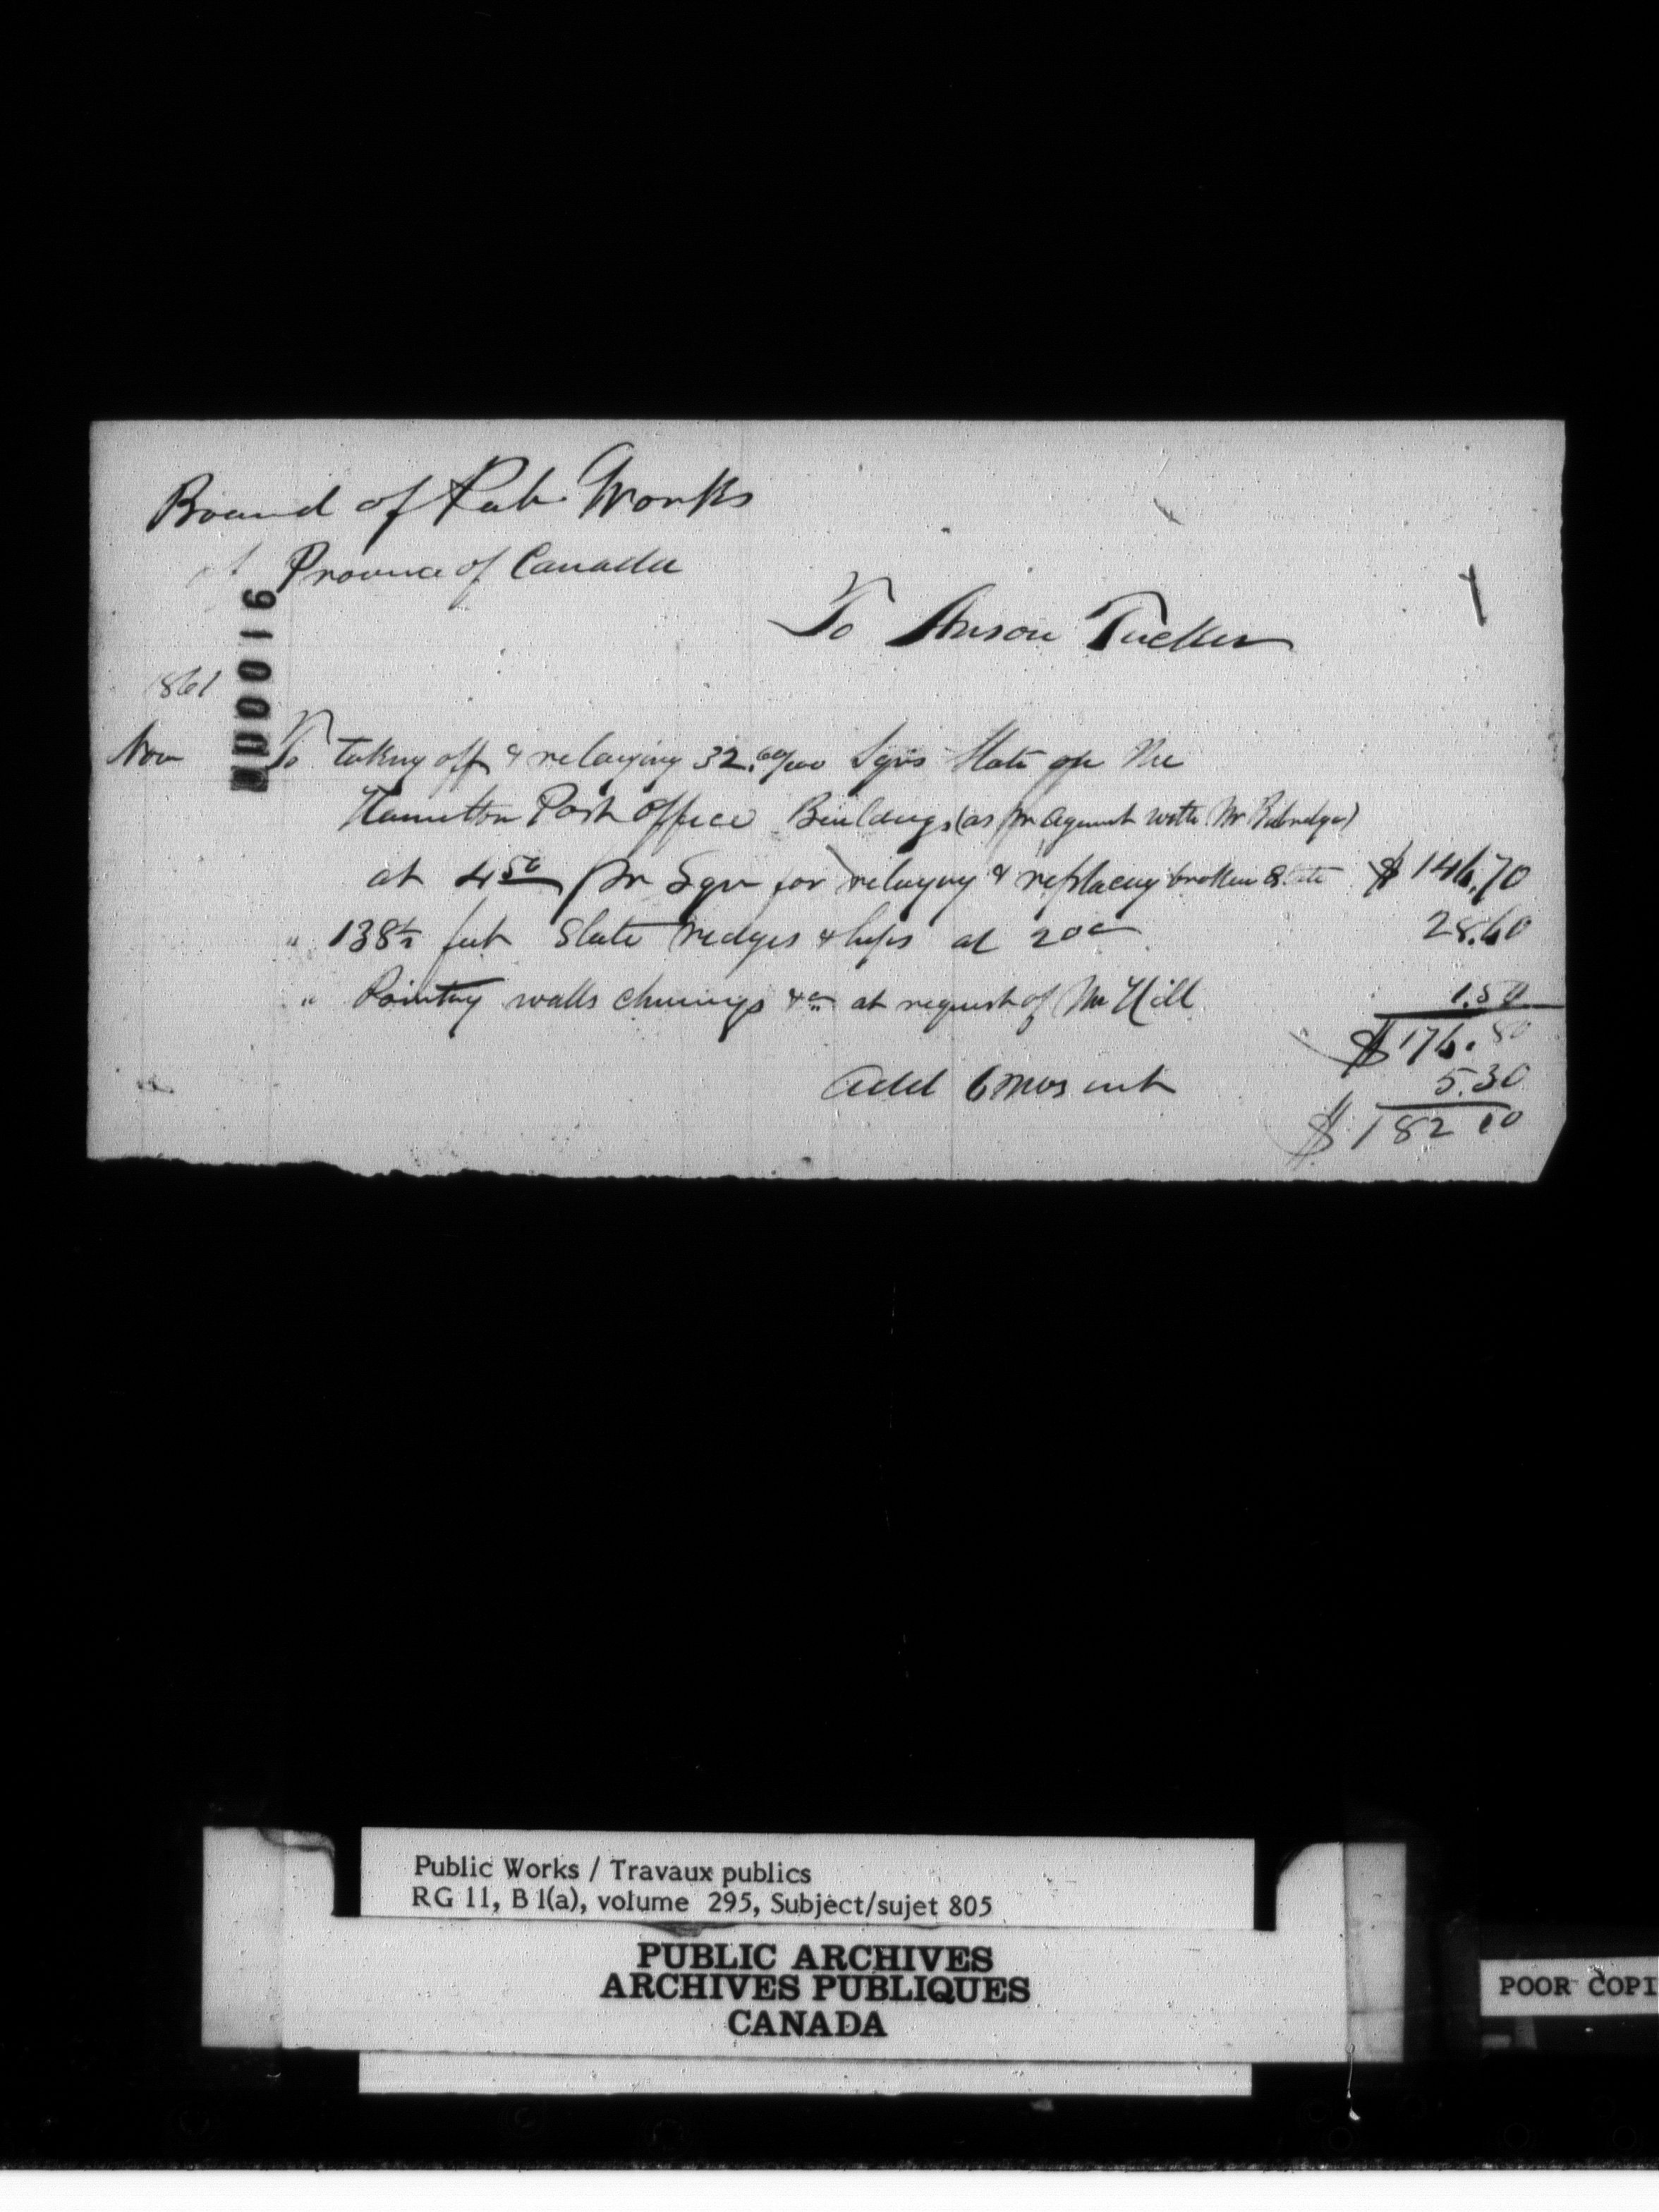 Board of Pub. Works
of Province of Canada
To Anson Tucker
1861
000016
Nov To taking off & relaying 32.60/100 Sqrs Slate on the
Hamilton Post Office Buildings (as pr Agemnt with Mr
at 4 50 pr Sqr for relaying & replacing broken Slate $146.70
" 138½ feet Slate ridges & hips at 20c 28.60
" Pointing walls chimnys &c at request of Mr Hill 1.50
$176.80
Add 6 mos int 5.30
$182 10
Public Works / Travaux publics
RG 11, B 1(a), volume 295, Subject/sujet 805
PUBLIC ARCHIVES
ARCHIVES PUBLIQUES
CANADA
POOR COPI